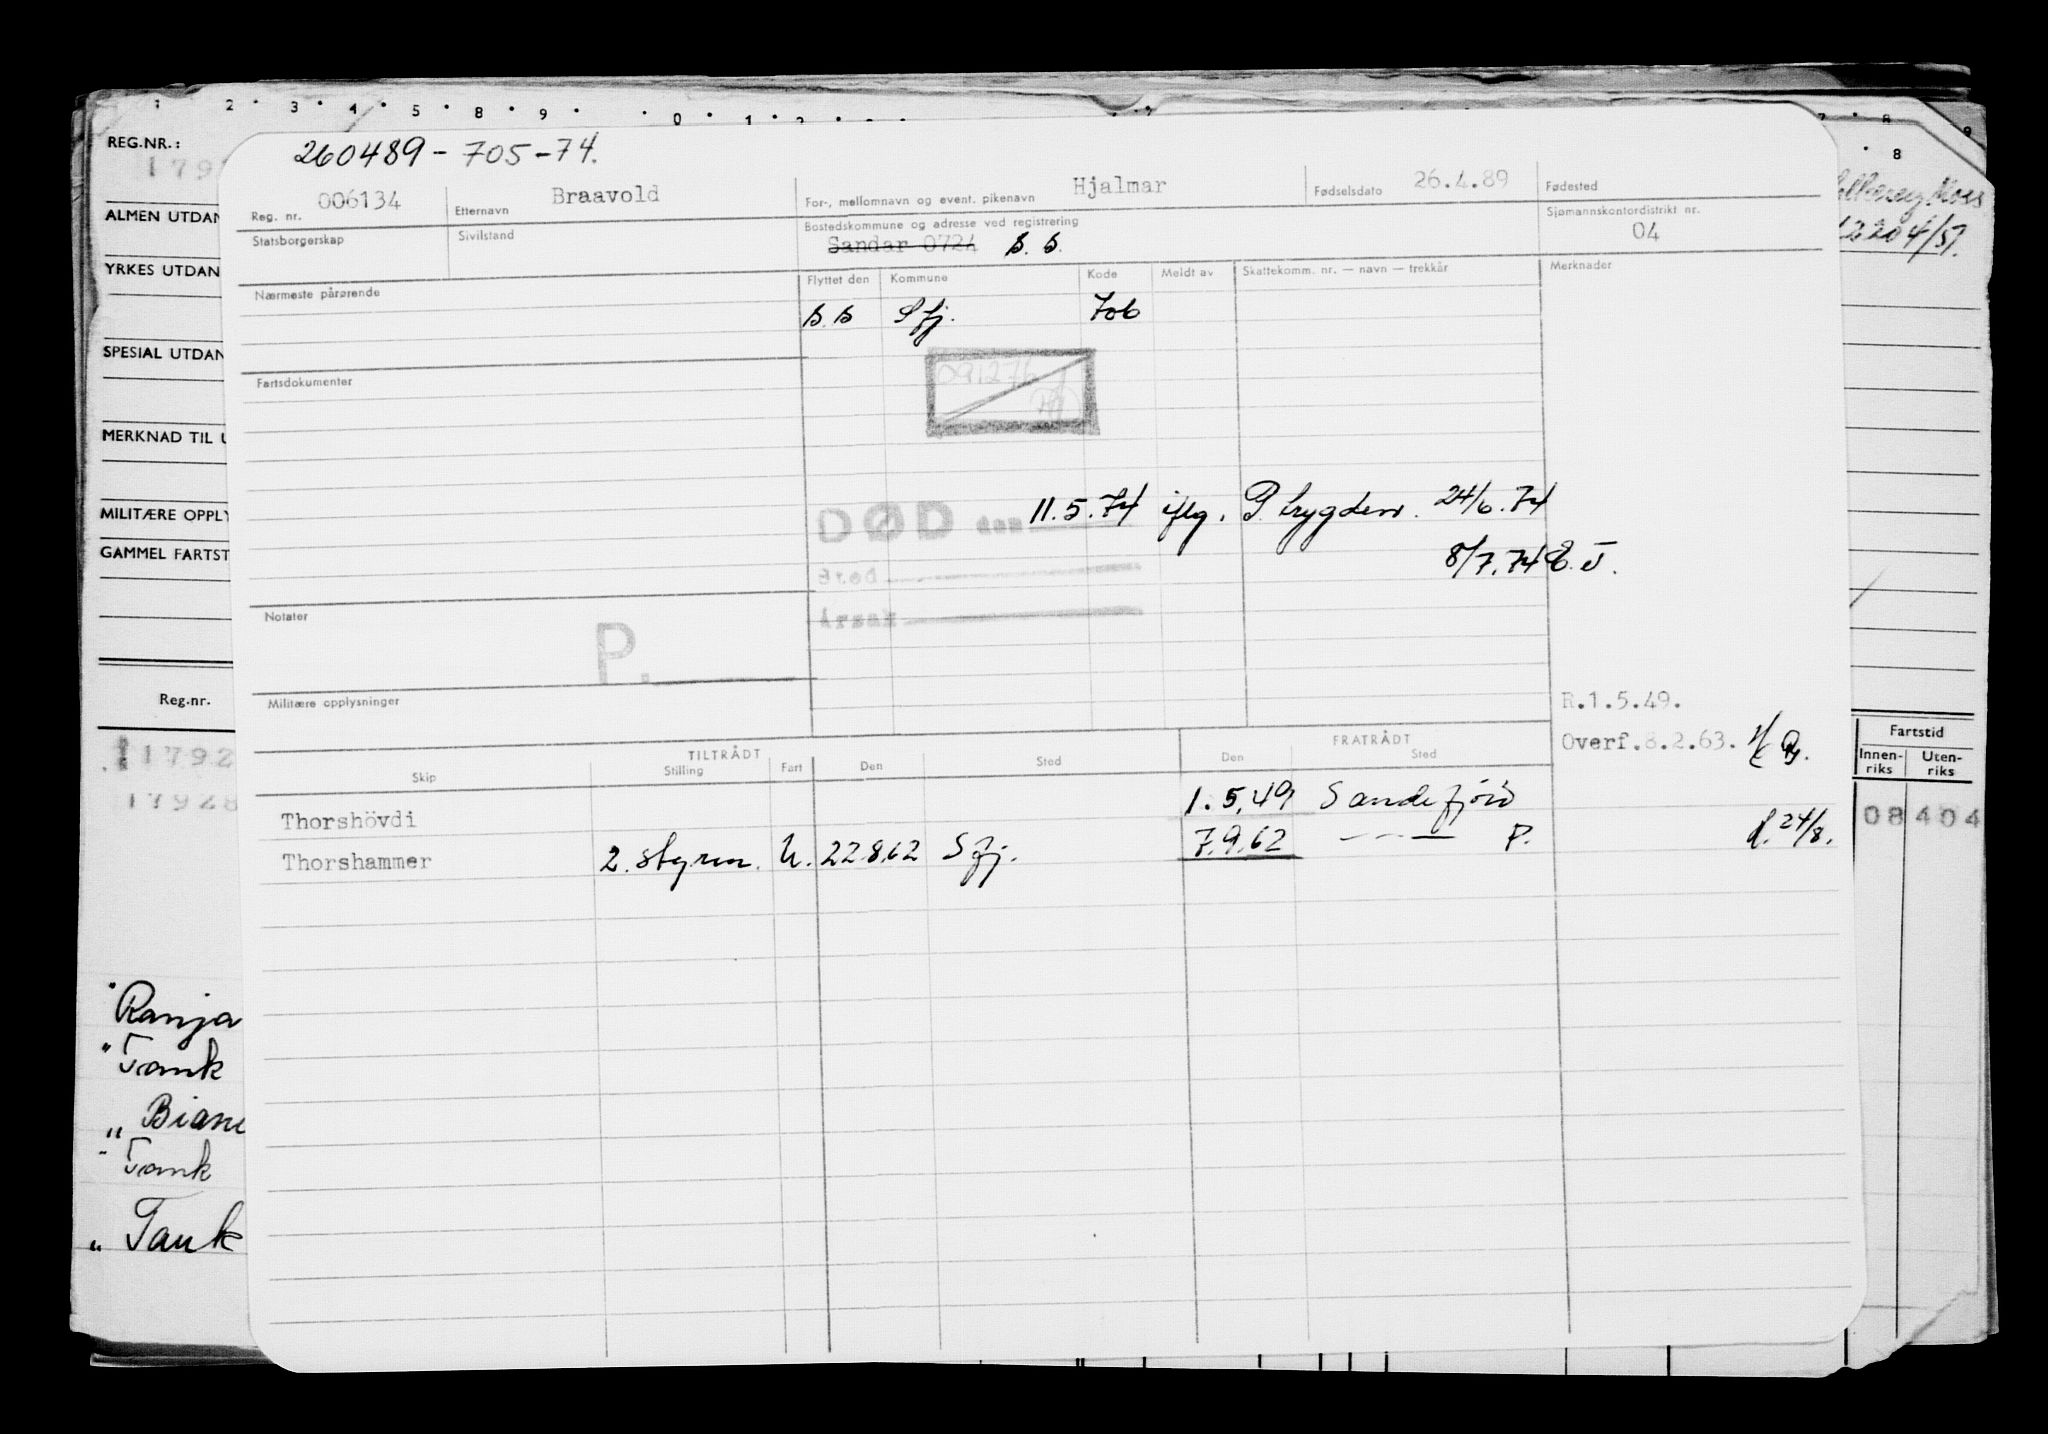 1 2 3 4 5 8 9 0 1 2
REG.NR.:
179
ALMEN UTDAN
YRKES UTDAN
SPESIAL UTDAN
MERKNAD TIL U
MILITÆRE OPPLY
GAMMEL FARTST
Reg.nr.
11792
17928
" Ranja
" Tank
" Biane
" Tank
" Tank
260489 - 705 - 74.
Reg. nr. 006134 Etternavn Braavold For-, mellomnavn og event. pikenavn Hjalmar Fødselsdato 26.4.89 Fødested
Statsborgerskap Sivilstand Bostedskommune og adresse ved registrering Sjømannskontordistrikt nr.
Sandar 0724 04
Nærmeste pårørende Flyttet den Kommune Kode Meldt av Skattekomm. nr. — navn — trekkår Merknader
Sfj. 706
Fartsdokumenter
091276
DØD den 11.5.74 iflg. P. trygden. 24/6.74
8/7.74
Sted
Årsak
Notater
P.
Militære opplysninger
R.1.5.49.
Overf.8.2.63.
TILTRÅDT FRATRÅDT
Skip Stilling Fart Den Sted Den Sted
Thorshövdi 1.5.49 Sandefjord
Thorshammer 2. styrm. U. 22.8.62 Sfj. 7.9.62 — " — P. d. 24/8.
8
Moss
Fartstid
Innen-riks Uten-riks
08404